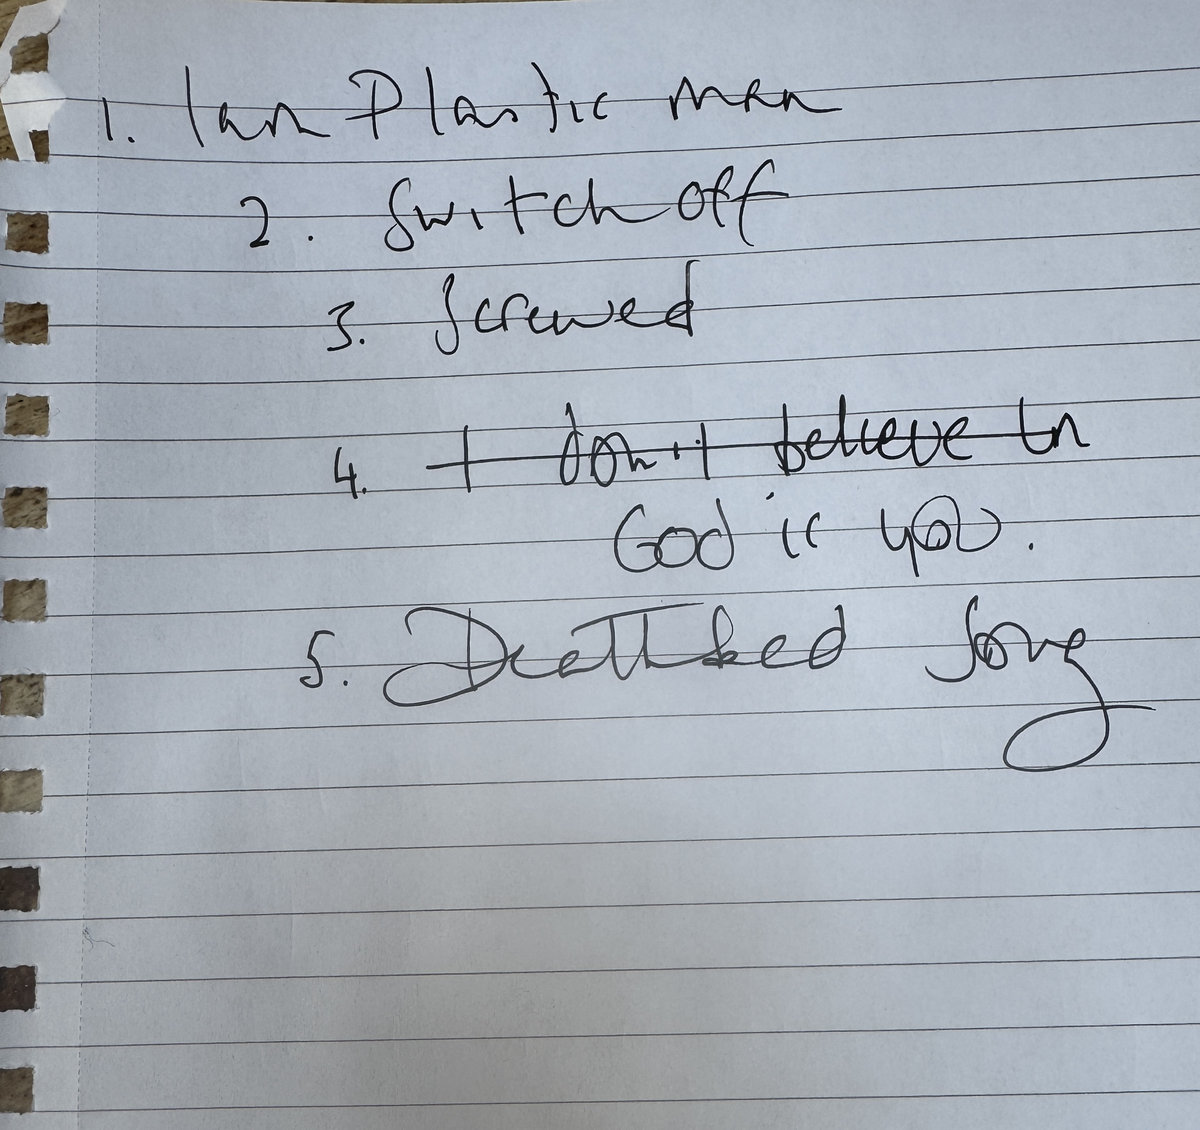 1. Iam Plastic man
2. Switch off
3. Screwed
4. I don't believe in
God is you.
5. Deathbed Song